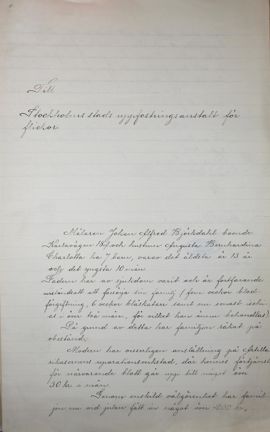 Till
Stockholms stads uppfostringsanstalt för
flickor
Målaren Johan Alfred Björkdahl boende
Karlavägen och hustrun Augusta Bernhardina
Charlotta ha 7 barn, varav det äldsta är 13 år
och det yngsta 10 mån
Fadern har av sjukdom varit och är fortfarande
urståndsatt att försörja sin familj (fem veckor blod-
förgiftning, 6 veckor blåskatarr samt nu senast ischi-
as i om två mån, för vilket han ännu behandlas)
På grund av detta har familjen råkat på
obestånd.
Modern har visserligen anställning på
reparationsverkstad, där hennes förtjänst
för närvarande blott går upp till något om
30 kr i mån.
Genom enskild välgörenhet har famil-
jen nu vid julen fått av något om